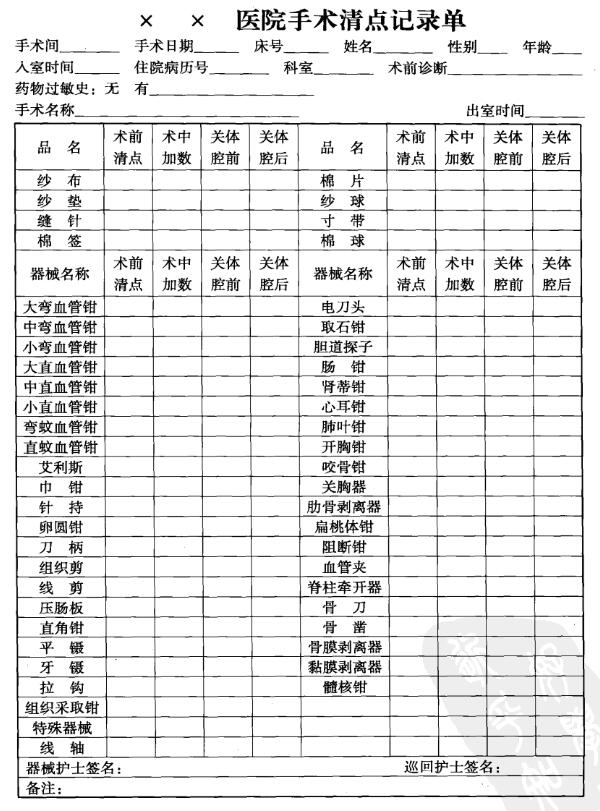 × × 医院手术清点记录单
手术间______ 手术日期______ 床号______ 姓名______ 性别____ 年龄____
入室时间______ 住院病历号______ 科室______ 术前诊断____________
药物过敏史：无 有____________
手术名称____________ 出室时间______
品 名 术前清点 术中加数 关体腔前 关体腔后 品 名 术前清点 术中加数 关体腔前 关体腔后
纱 布 棉 片
纱 垫 纱 球
缝 针 寸 带
棉 签 棉 球
器械名称 术前清点 术中加数 关体腔前 关体腔后 器械名称 术前清点 术中加数 关体腔前 关体腔后
大弯血管钳 电刀头
中弯血管钳 取石钳
小弯血管钳 胆道探子
大直血管钳 肠 钳
中直血管钳 肾蒂钳
小直血管钳 心耳钳
弯蚊血管钳 肺叶钳
直蚊血管钳 开胸钳
艾利斯 咬骨钳
巾 钳 关胸器
针 持 肋骨剥离器
卵圆钳 扁桃体钳
刀 柄 阻断钳
组织剪 血管夹
线 剪 脊柱牵开器
压肠板 骨 刀
直角钳 骨 凿
平 镊 骨膜剥离器
牙 镊 黏膜剥离器
拉 钩 髓核钳
组织采取钳
特殊器械
线 轴
器械护士签名： 巡回护士签名：
备注：